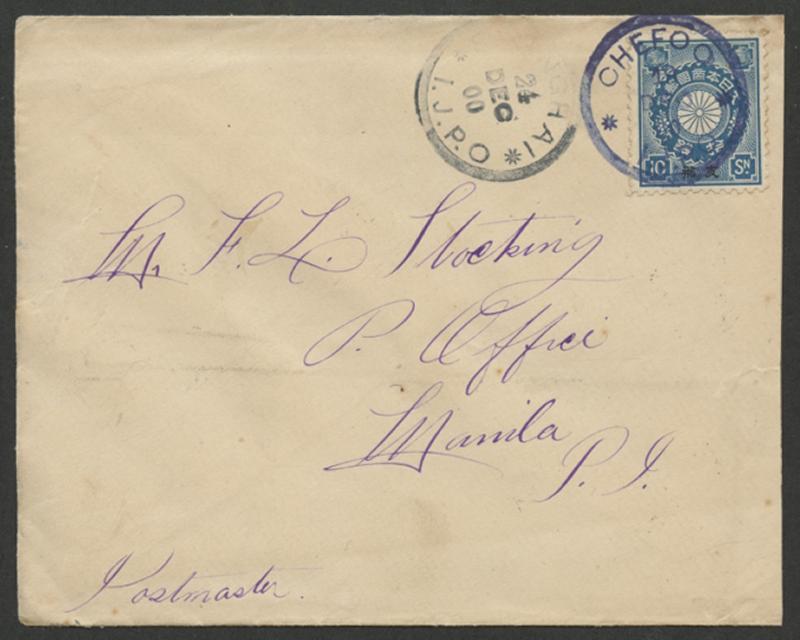 CHEFOO
大日本帝國郵便
10 SN
支那
GHAI
24
DEC
00
I.J.P.O
M. F. L. Stocking
P. Office
Manila
P. I.
Postmaster.